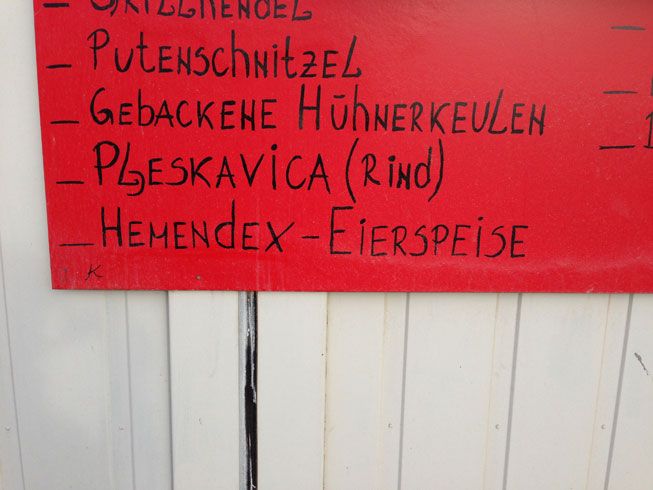 – GRILLHENDEL
– PUTENSCHNITZEL
– GEBACKENE HÜHNERKEULEN
– PLJESKAVICA (RIND)
– HEMENDEX – EIERSPEISE
K